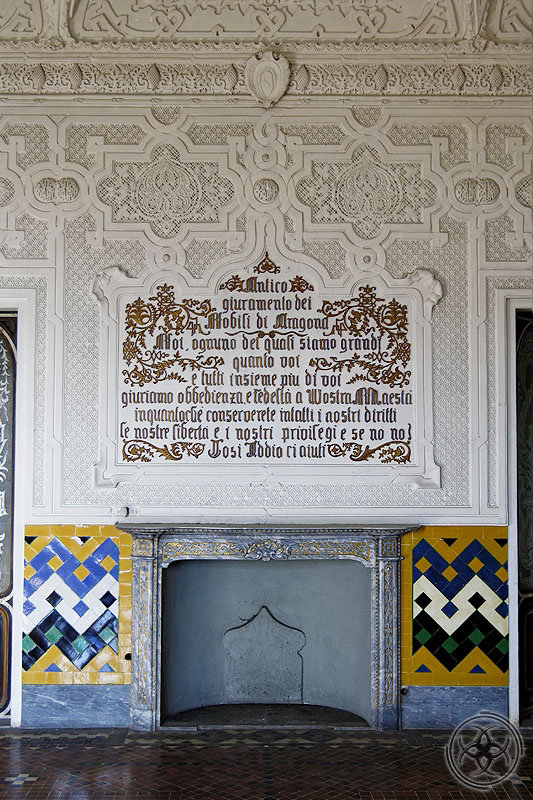 Antico
giuramento dei
Nobili di Aragona
Noi, ognuno dei quali siamo grandi
quanto voi
e tutti insieme piu di voi
giuriamo obbedienza, e fedeltà a Vostra Maestà
inquantoché conserverete intatti i nostri diritti
le nostre libertà e i nostri privilegi e se no no!
Così Iddio ci aiuti